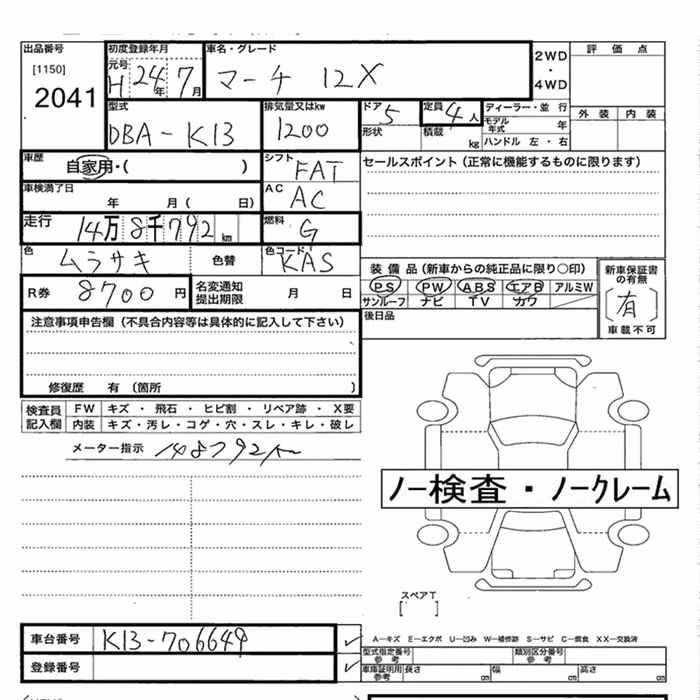 出品番号 初度登録年月 車名・グレード 2WD・4WD 評価点
[1150] 元号 H 24年 7月 マーチ 12X
2041 型式 排気量又はkw ドア 5 定員 4人 ディーラー・並行 外装 内装
DBA-K13 1200 形状 積載 kg モデル年式 年
ハンドル 左・右
車歴 自家用・( ) シフト FAT セールスポイント(正常に機能するものに限ります)
車検満了日 年 月( 日) AC AC
走行 14万8千792km 燃料 G
色 ムラサキ 色替 色コード KAS 装備品(新車からの純正品に限り○印) 新車保証書の有無
R券 8700円 名変通知提出期限 月 日 PS PW ABS エアB アルミW [有]
サンルーフ ナビ TV カワ 車載不可
注意事項申告欄(不具合内容等は具体的に記入して下さい) 後日品
修復歴 有(箇所 )
検査員 FW キズ・飛石・ヒビ割・リペア跡・X要
記入欄 内装 キズ・汚レ・コゲ・穴・スレ・キレ・破レ
メーター指示 148792km
ノー検査・ノークレーム
スペアT
[ ]
車台番号 K13-706649 A―キズ E―エクボ U―凹み W―補修跡 S―サビ C―腐食 XX―交換済
登録番号 型式指定番号参考 類別区分番号参考
車庫証明用参考 長さ cm 幅 cm 高さ cm